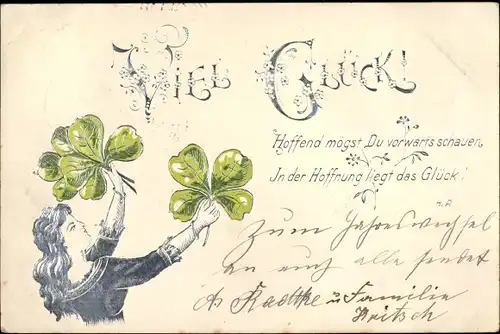 Viel Glück!
Hoffend mögst Du vorwärts schauen,
In der Hoffnung liegt das Glück!
Zum Jahreswechsel
an euch alle sendet
Radtke u Familie